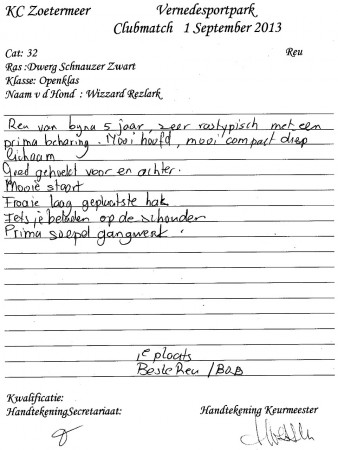 KC Zoetermeer Vernedesportpark
Clubmatch 1 September 2013
Cat: 32 Reu
Ras :Dwerg Schnauzer Zwart
Klasse: Openklas
Naam v d Hond : Wizzard Rezlark
Reu van byna 5 jaar, zeer rastypisch met een
prima beharing. Mooi hoofd, mooi compact diep
lichaam
Goed gehoekt voor en achter.
Mooie staart
Fraaie laag geplaatste hak
Iets je beladen op de schouder
Prima soepel gangwerk.
1e plaats
Beste Reu / BOB
Kwalificatie:
HandtekeningSecretariaat: Handtekening Keurmeester